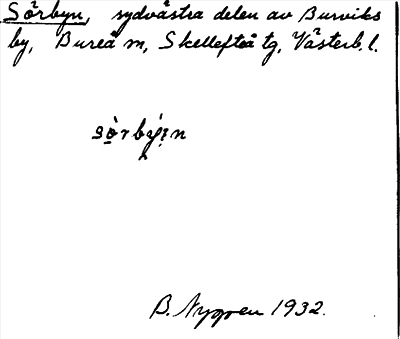 Sörbyn, sydvästra delen av Burviks
by, Bureå m, Skellefteå tg, Västerb. l.
sö̀rbýn
B. Nygren 1932.